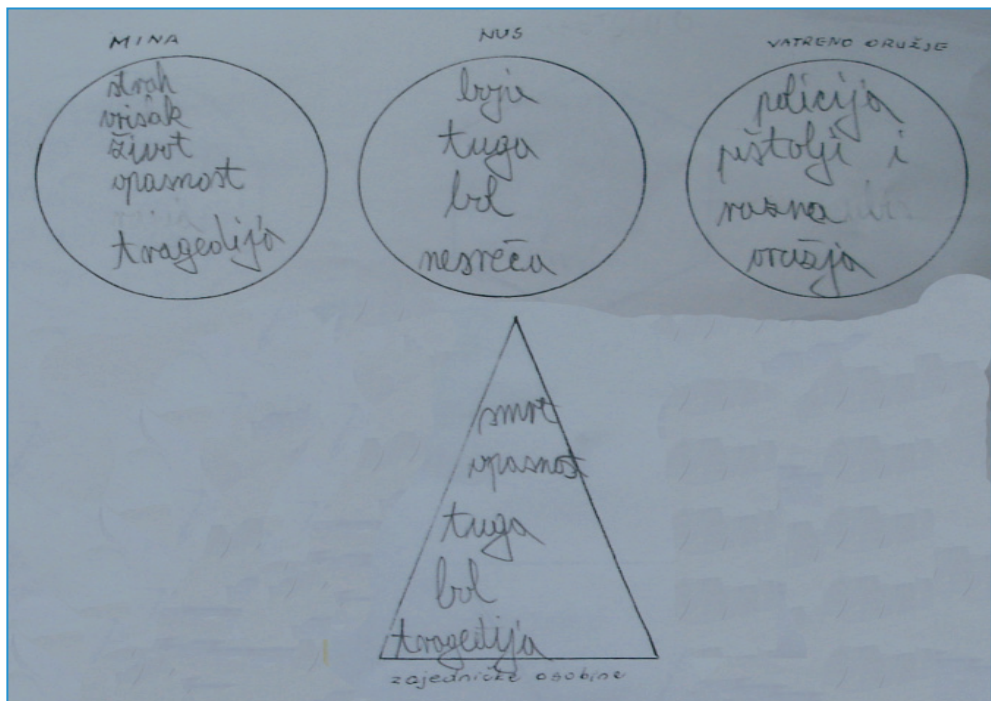 MINA
strah
vrisak
život
opasnost
tragedija
NUS
boje
tuga
bol
nesreča
VATRENO ORUŽJE
policija
pištolji i
razna
oružja
smrt
opasnost
tuga
bol
tragedija
zajedničke osobine